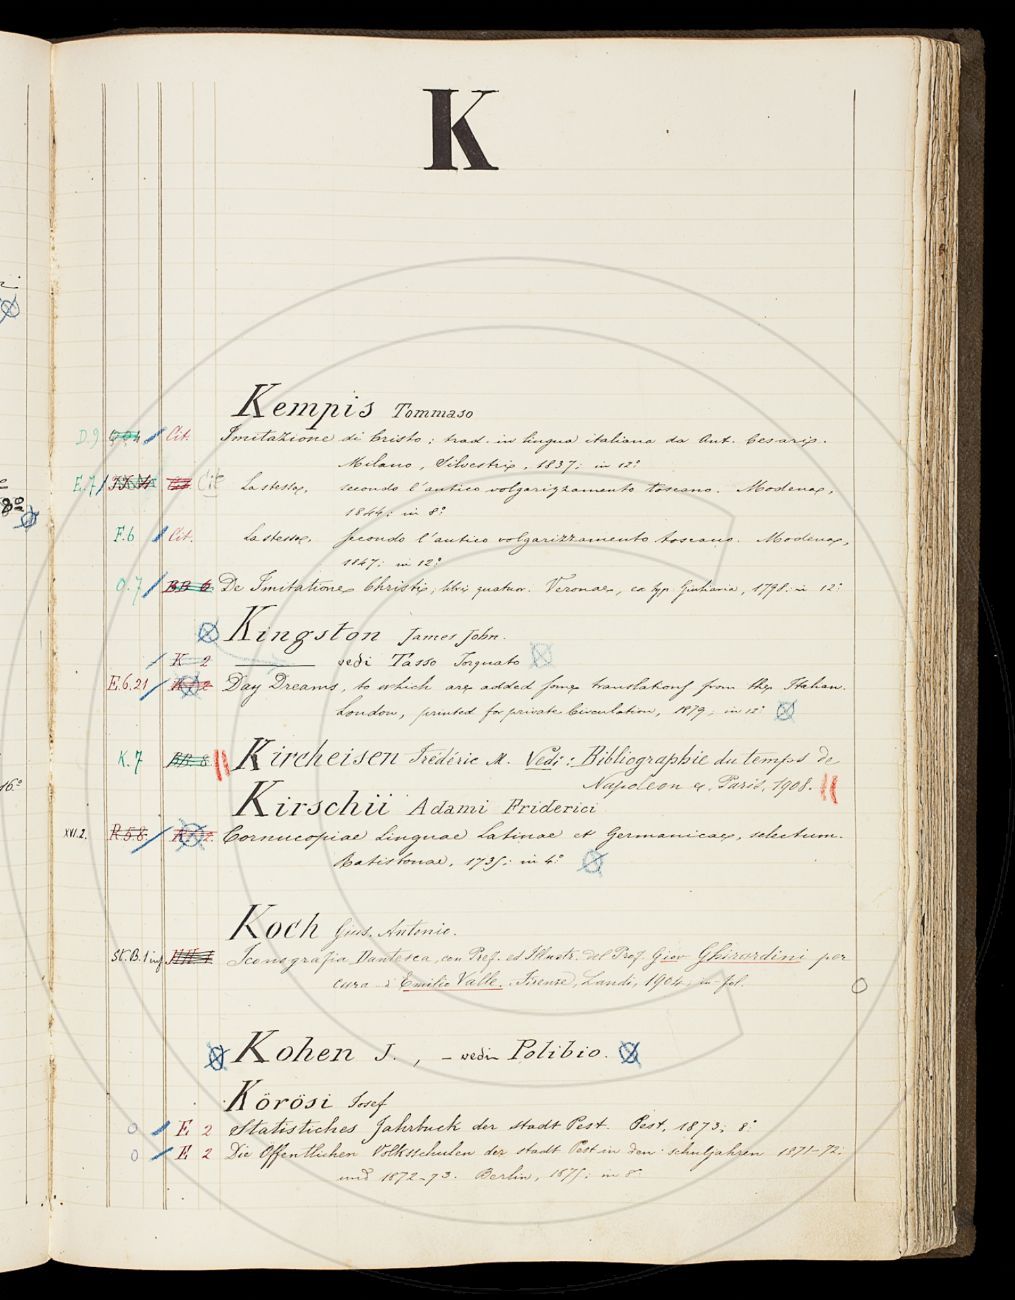 K
Kempis Tommaso
D.9 Cit. Imitazione di Cristo; trad. in lingua italiana da Ant. Cesari.
Milano, Silvestri, 1837; in 12º
E.7 Cit La stessa, secondo l'antico volgarizzamento toscano. Modena,
1844; in 8º
F.6 Cit. La stessa, secondo l'antico volgarizzamento toscano. Modena,
1847; in 12º
O.7 BB 6 De Imitatione Christi, libri quatuor. Veronae, ex typ. Giuliania, 1798; in 12º
Kingston James John.
K 2 vedi Tasso Torquato
E.6.21 K 2 Day Dreams, to which are added some translations from the Italian.
London, printed for private Circulation, 1873; in 12º
K.7 BB. 8 Kircheisen Frédéric M. Vedi: Bibliographie du temps de
Napoléon Paris, 1908.
Kirschii Adami Friderici
XVI.2. R.5.8. K 2. Cornucopiae Linguae Latinae et Germanicae, selectum.
Ratisbonae, 1735; in 4º
Koch Gius. Antonio.
St.B.1 inf Iconografia Dantesca, con Pref. ed Illustr. del Prof. Giov Ghirardini per
cura di Emilio Valle. Firenze, Landi, 1904 in-fol.
Kohen J., – vedi Polibio.
Körösi Josef
E 2 Statistiches Jahrbuch der stadt Pest. Pest, 1873; 8º
E 2 Die Öffentlichen Volksschulen der stadt Pest in den schuljahren 1871-72;
und 1872-73. Berlin, 1875; in 8º
8º
16º